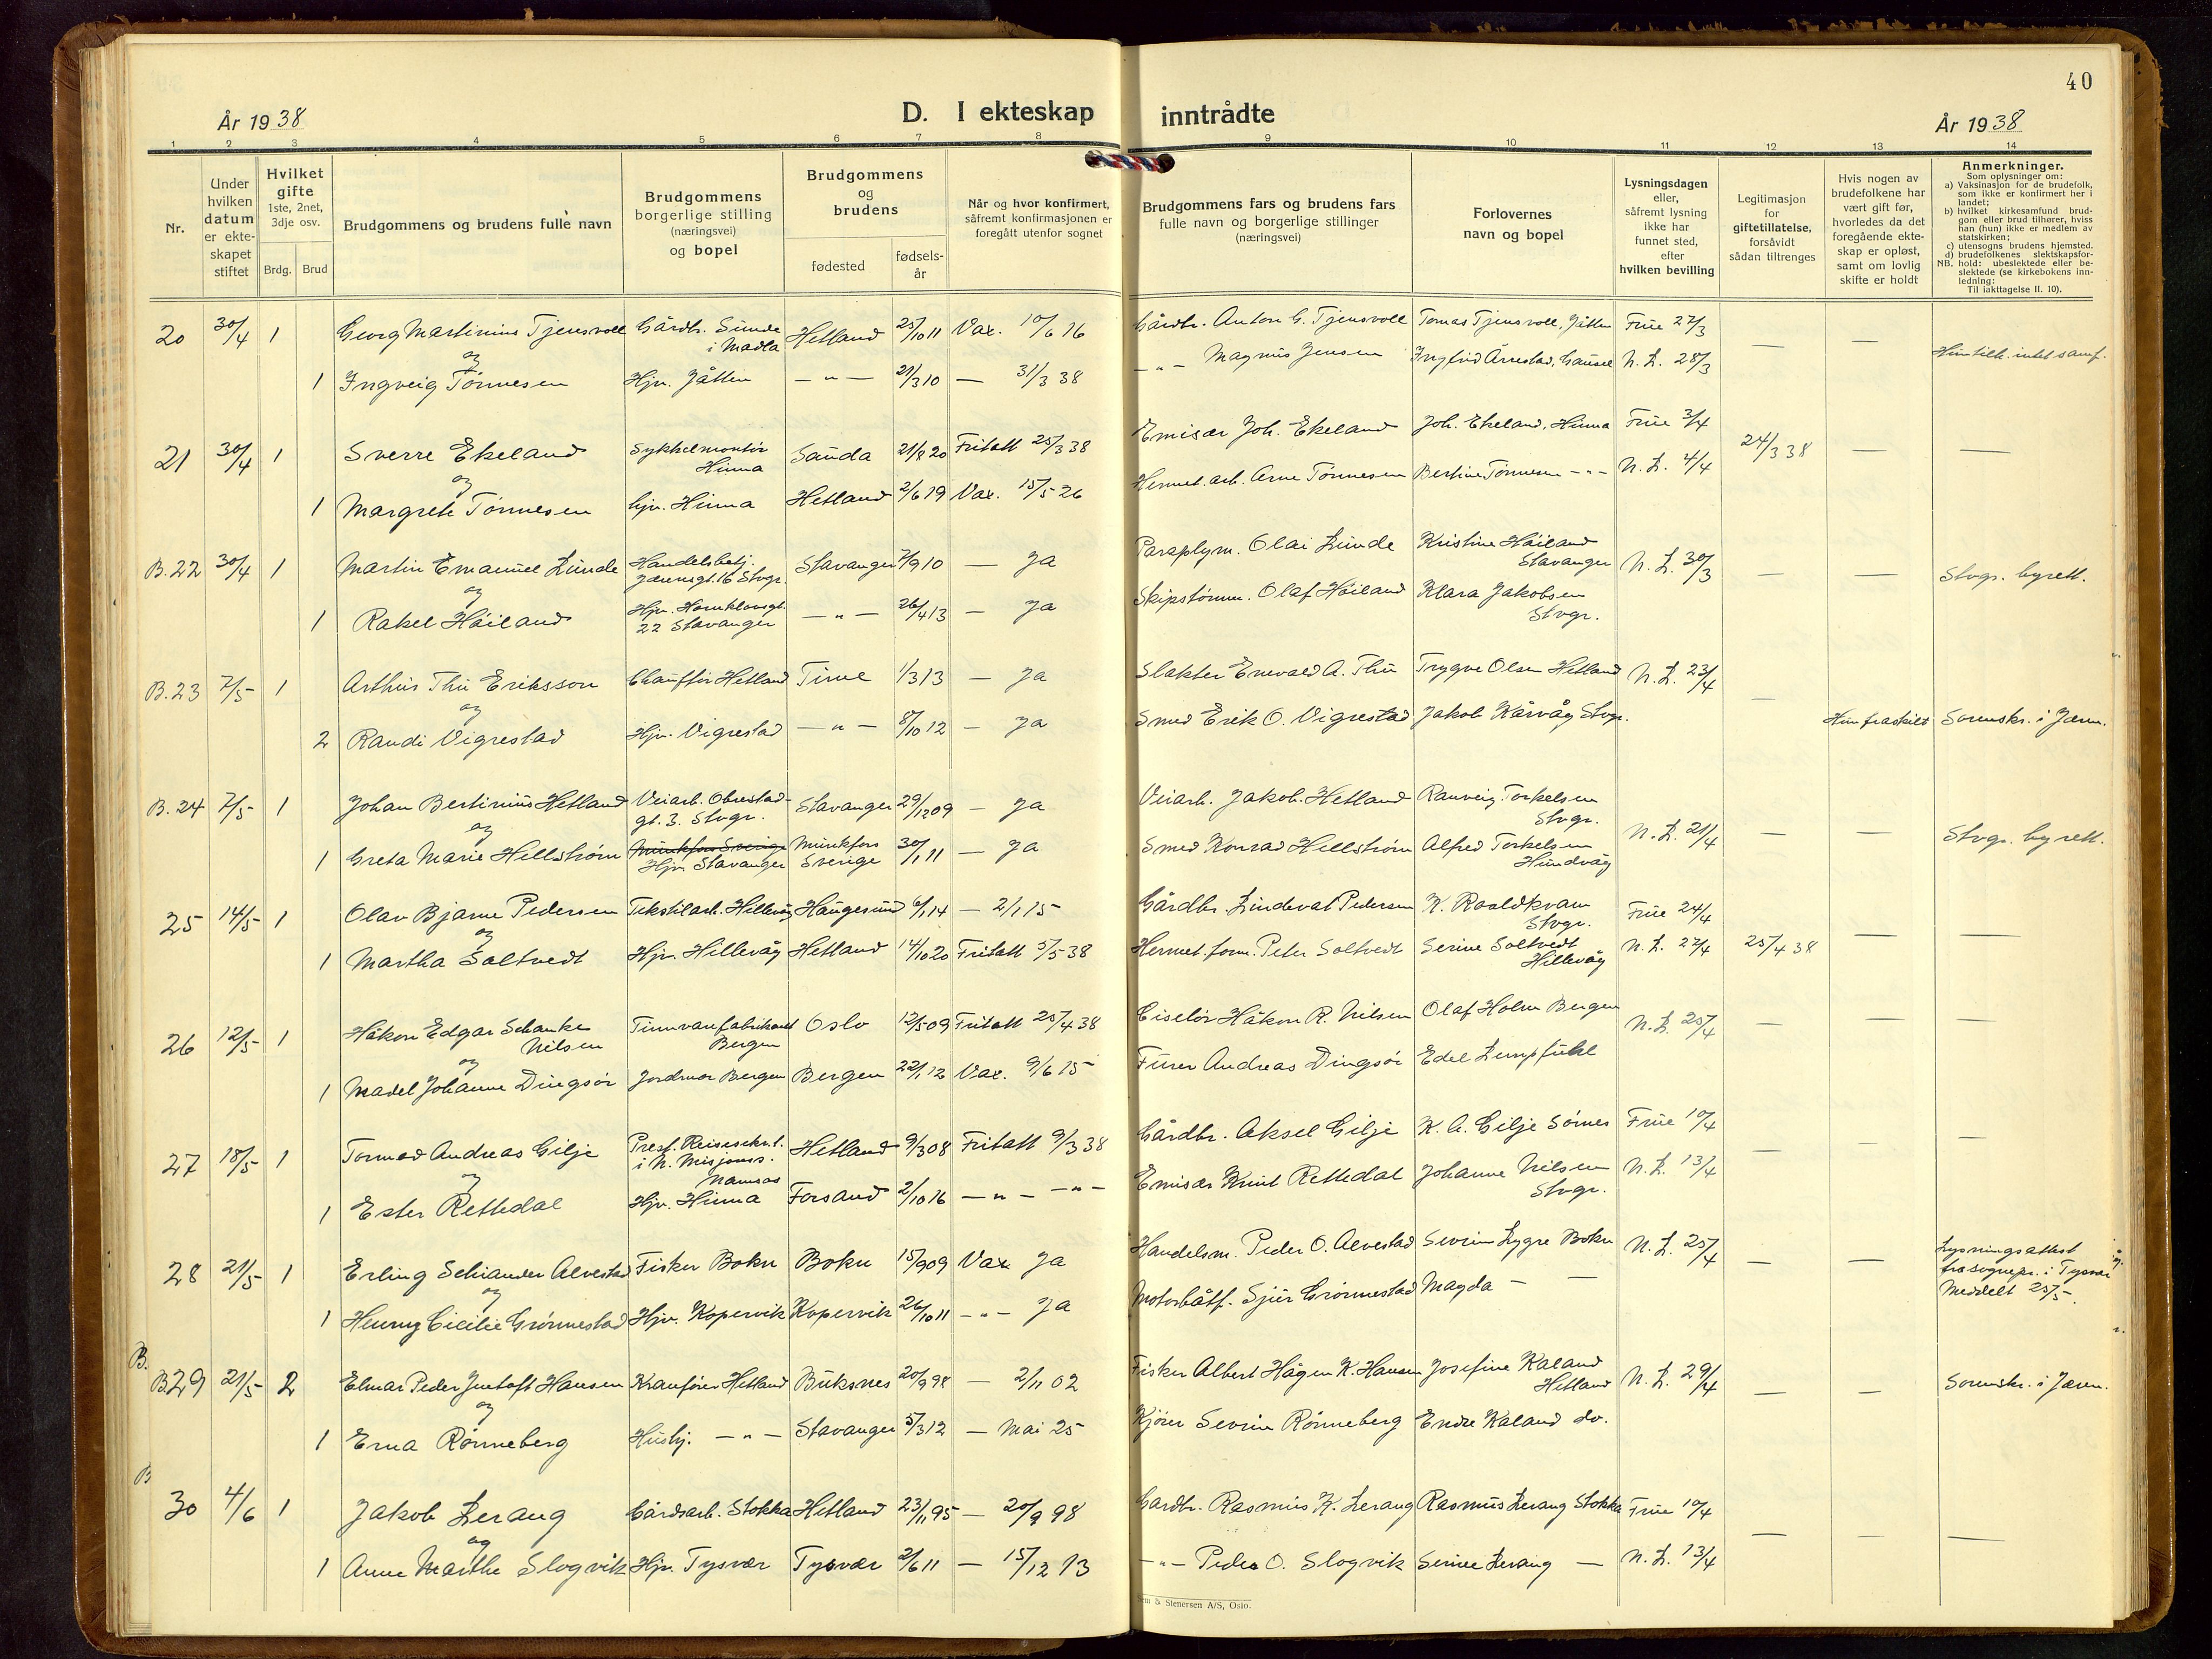 40
År 1938
D. I ekteskap inntrådte
År 1938
1 2 3 4 5 6 7 8 9 10 11 12 13 14
Nr.
Under
hvilken
datum
er ekte-
skapet
stiftet
Hvilket
gifte
1ste, 2net,
3dje osv.
Brdg. Brud
Brudgommens og brudens fulle navn
Brudgommens
borgerlige stilling
(næringsvei)
og bopel
Brudgommens
og
brudens
fødested
fødsels-
år
Når og hvor konfirmert,
såfremt konfirmasjonen er
foregått utenfor sognet
Brudgommens fars og brudens fars
fulle navn og borgerlige stillinger
(næringsvei)
Forlovernes
navn og bopel
Lysningsdagen
eller,
såfremt lysning
ikke har
funnet sted,
efter
hvilken bevilling
Legitimasjon
for
giftetillatelse,
forsåvidt
sådan tiltrenges
Hvis nogen av
brudefolkene har
vært gift før,
hvorledes da det
foregående ekte-
skap er opløst,
samt om lovlig
skifte er holdt
Anmerkninger.
Som oplysninger om:
a) Vaksinasjon for de brudefolk,
som ikke er konfirmert her i
landet;
b) hvilket kirkesamfund brud-
gom eller brud tilhører, hviss
han (hun) ikke er medlem av
statskirken;
c) utensogns brudens hjemsted.
d) brudefolkenes slektskapsfor-
NB. hold: ubeslektede eller be-
slektede (se kirkebokens inn-
ledning:
Til iakttagelse II. 10).
20 30/4 1 Georg Martinius Tjensvoll Gårdbr. Sunde i Madla Hetland 25/10 11 Vax. 10/6 16 Gårdbr. Anton G. Tjensvoll Tomas Tjensvoll, Jåtten Frue 27/3
og
1 Ingveig Tönnesen Hjv. Jåtten — " — 21/3 10 — 31/3 38 — " — Magnus Jensen Ingfrid Årrestad, Gausel N. L. 28/3 — — Hun tilh. intet samf.
21 30/4 1 Sverre Ekeland Sykkelmontör Hinna Sauda 21/8 20 Fritatt 25/3 38 Emisær Joh. Ekeland Joh. Ekeland, Hinna Frue 3/4 24/3 38 — —
og
1 Margrete Tönnesen hjv. Hinna Hetland 2/6 19 Vax. 15/5 26 Hermet. arb. Arne Tönnesen Bertine Tönnesen — " — N. L. 4/4
B. 22 30/4 1 Martin Emanuel Lunde Handelsbetj. Jærensgt. 16 Stvgr. Stavanger 7/9 10 — Ja Paraplym. Olai Lunde Kristine Höiland Stavanger N. L. 30/3 — — Stvgr. byrett.
og
1 Rakel Höiland Hjv. Hornklovsgt. 22 Stavanger — " — 26/4 13 — Ja Skipstömm. Olaf Höiland Klara Jakobsen Stvgr.
B. 23 7/5 1 Arthur Thu Eriksson Chaufför Hetland Time 1/3 13 — Ja Slakter Enevald A. Thu Trygve Olsen Hetland N. L. 23/4 —
og
2 Randi Vigrestad Hjv. Vigrestad — " — 8/10 12 — Ja Smed Erik O. Vigrestad Jakob Kårvåg Stvgr. Hun fraskilt Sorenskr. i Jæren.
B. 24 7/5 1 Johan Bertinius Hetland Veiarb. Obrestad- gt. 3. Stvgr. Stavanger 29/12 09 — Ja Veiarb. Jakob. Hetland Ranveig Torkelsen Stvgr. N. L. 21/4 — — Stvgr. byrett.
og
1 Greta Marie Hellström Munkfors Sverige Hjv. Stavanger Munkfors Sverige 30/1 11 — Ja Smed Konrad Hellström Alfred Torkelsen Hundvåg
25 14/5 1 Olav Bjarne Pedersen Tekstilarb. Hillevåg Haugesund 6/1 14 — 2/1 15 Gårdbr. Lindeval Pedersen K. Roaldkvam Stvgr. Frue 24/4
og
1 Martha Soltvedt Hjv. Hillevåg Hetland 14/10 20 Fritatt 5/5 38 Hermet. form. Peter Soltvedt Serine Soltvedt Hillevåg N. L. 27/4 25/4 38 — —
26 12/5 1 Håkon Edgar Schanke Nilsen Tinnvarefabrikant Bergen Oslo 12/5 09 Fritatt 25/4 38 Ciselör Håkon R. Nilsen Olaf Holm Bergen N. L. 25/4 — — —
og
1 Madel Johanne Dingsör Jordmor Bergen Bergen 22/1 12 Vax. 9/6 15 Furer Andreas Dingsör Edel Lempfuhl
27 18/5 1 Tormod Andreas Gilje Prest. Reisesekret. i N. Misjonss. Namsos Hetland 9/3 08 Fritatt 9/3 38 Gårdbr. Aksel Gilje K. A. Gilje Sömes Frue 10/4 — — —
og
1 Ester Rettedal Hjv. Hinna Forsand 2/10 16 — " — — " — Emisær Knut Rettedal Johanne Nilsen Stvgr. N. L. 13/4
28 21/5 1 Erling Schiander Alvestad Fisker Bokn Bokn 15/9 09 Vax Ja Handelsm. Peder O. Alvestad Sevrin Lygre Bokn N. L. 25/4 — — Lysningsattest fra sognepr. i Tysvær Meddelt 25/5.
og
1 Henny Cicilie Grönnestad Hjv. Kopervik Kopervik 26/10 11 — " — Ja Motorbåtf. Sjur Grönnestad Magda — —
B.
B29 21/5 2 Elmar Peder Justoft Hansen Kranförer Hetland Buksnes 20/9 98 — 2/11 02 Fisker Albert Hågen K. Hansen Josefine Kaland Hetland N. L. 29/4 — — Sorenskr. i Jæren.
og
1 Erna Rönneberg Hushj. — " — Stavanger 5/3 12 — Mai 25 Kjörer Sevrin Rönneberg Endre Kaland do.
B
30 4/6 1 Jakob Lerang Gårdsarb. Stokka Hetland 23/11 95 — 20/9 98 Gardbr. Rasmus K. Lerang Rasmus Lerang Stokka Frue 10/4 — — —
og
1 Anne Marthe Slogvik Hjv. Tysvær Tysvær 2/6 11 — 15/12 13 — " — Peder O. Slogvik Serine Lerang — N. L. 13/4
Sem & Stenersen A/S, Oslo.